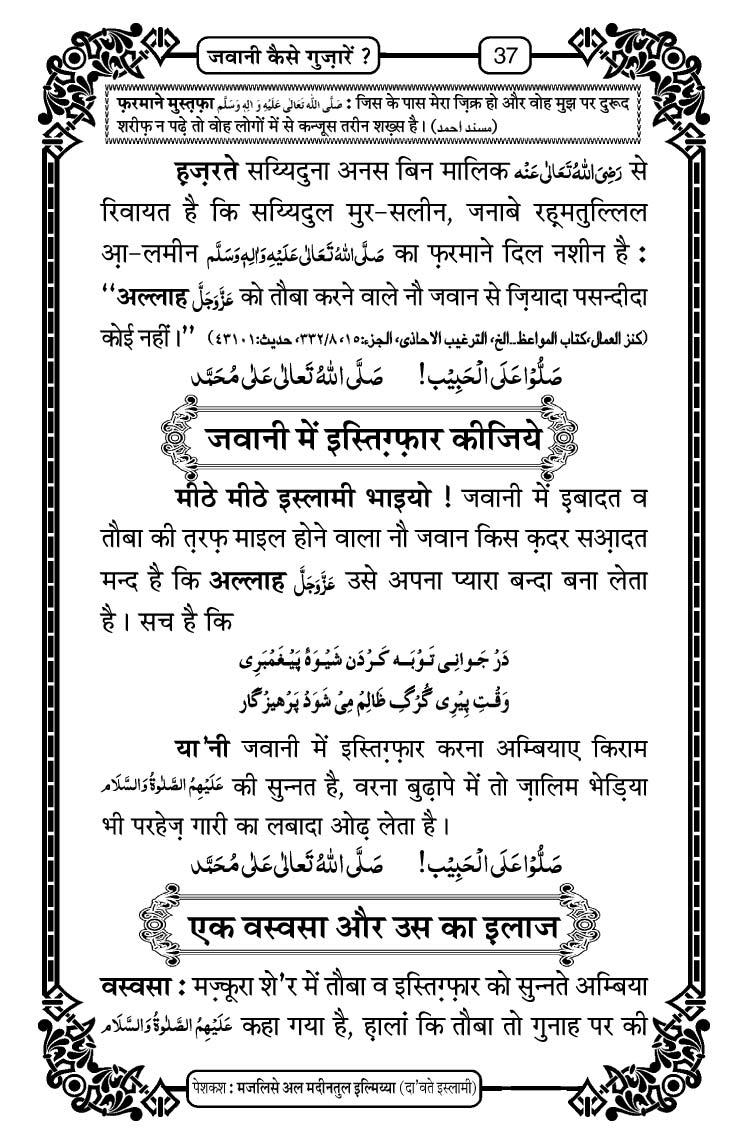 जवानी कैसे गुज़ारें ?
37
फ़रमाने मुस्त़फ़ा صَلَّى اللهُ تَعَالٰى عَلَيْهِ وَاٰلِهٖ وَسَلَّم : जिस के पास मेरा ज़िक्र हो और वोह मुझ पर दुरूद
शरीफ़ न पढ़े तो वोह लोगों में से कन्जूस तरीन शख़्स है। (مسند احمد)
ह़ज़रते सय्यिदुना अनस बिन मालिक رَضِیَ اللهُ تَعَالٰی عَنْه से
रिवायत है कि सय्यिदुल मुर-सलीन, जनाबे रह़मतुल्लिल
आ़-लमीन صَلَّى اللهُ تَعَالٰى عَلَيْهِ وَاٰلِهٖ وَسَلَّم का फ़रमाने दिल नशीन है :
‘‘अल्लाह عَزَّوَجَلَّ को तौबा करने वाले नौ जवान से ज़ियादा पसन्दीदा
कोई नहीं।’’ (کنز العمال،کتاب المواعظ...الخ، الترغیب الاحادی، الجزء:۱۵، ۳۳۲/۸، حدیث:۴۳۱۰۱)
صَلُّوْا عَلَى الْحَبِيْب! صَلَّى اللهُ تَعَالٰى عَلٰى مُحَمَّد
जवानी में इस्तिग़्फ़ार कीजिये
मीठे मीठे इस्लामी भाइयो ! जवानी में इ़बादत व
तौबा की त़रफ़ माइल होने वाला नौ जवान किस क़दर सआ़दत
मन्द है कि अल्लाह عَزَّوَجَلَّ उसे अपना प्यारा बन्दा बना लेता
है। सच है कि
دَرْ جَوَانِی تَوْبَه کَرْدَن شَیْوَۂ پَیْغَمْبَرِی
وَقْتِ پِیْرِی گُرْگِ ظَالِمْ مِیْ شَوَدْ پَرْهِیْزْگَار
या’नी जवानी में इस्तिग़्फ़ार करना अम्बियाए किराम
عَلَيْهِمُ الصَّلٰوةُ وَالسَّلَام की सुन्नत है, वरना बुढ़ापे में तो ज़ालिम भेड़िया
भी परहेज़ गारी का लबादा ओढ़ लेता है।
صَلُّوْا عَلَى الْحَبِيْب! صَلَّى اللهُ تَعَالٰى عَلٰى مُحَمَّد
एक वस्वसा और उस का इलाज
वस्वसा : मज़्कूरा शे’र में तौबा व इस्तिग़्फ़ार को सुन्नते अम्बिया
عَلَيْهِمُ الصَّلٰوةُ وَالسَّلَام कहा गया है, ह़ालां कि तौबा तो गुनाह पर की
पेशकश : मजलिसे अल मदीनतुल इल्मिय्या (दा’वते इस्लामी)